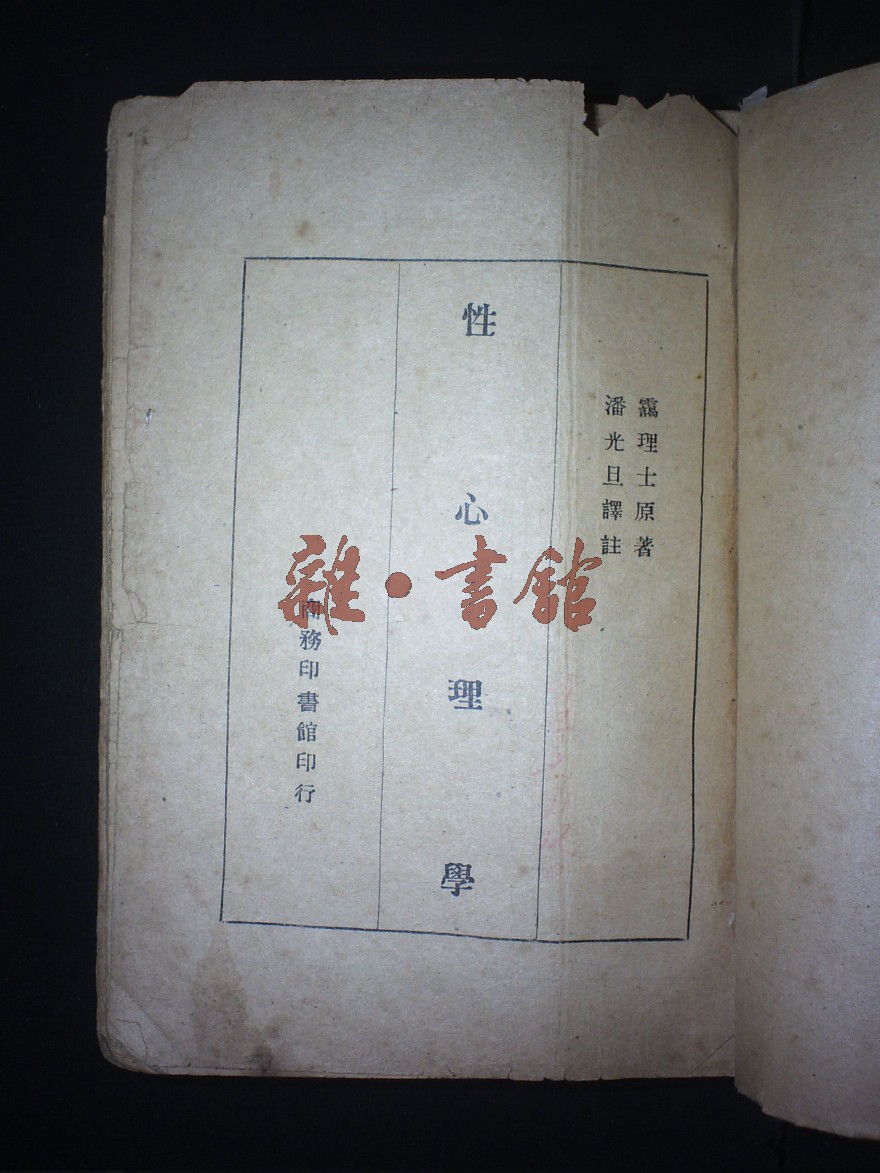 靄理士原著
潘光旦譯註
性心理學
商務印書館印行
雜·書館